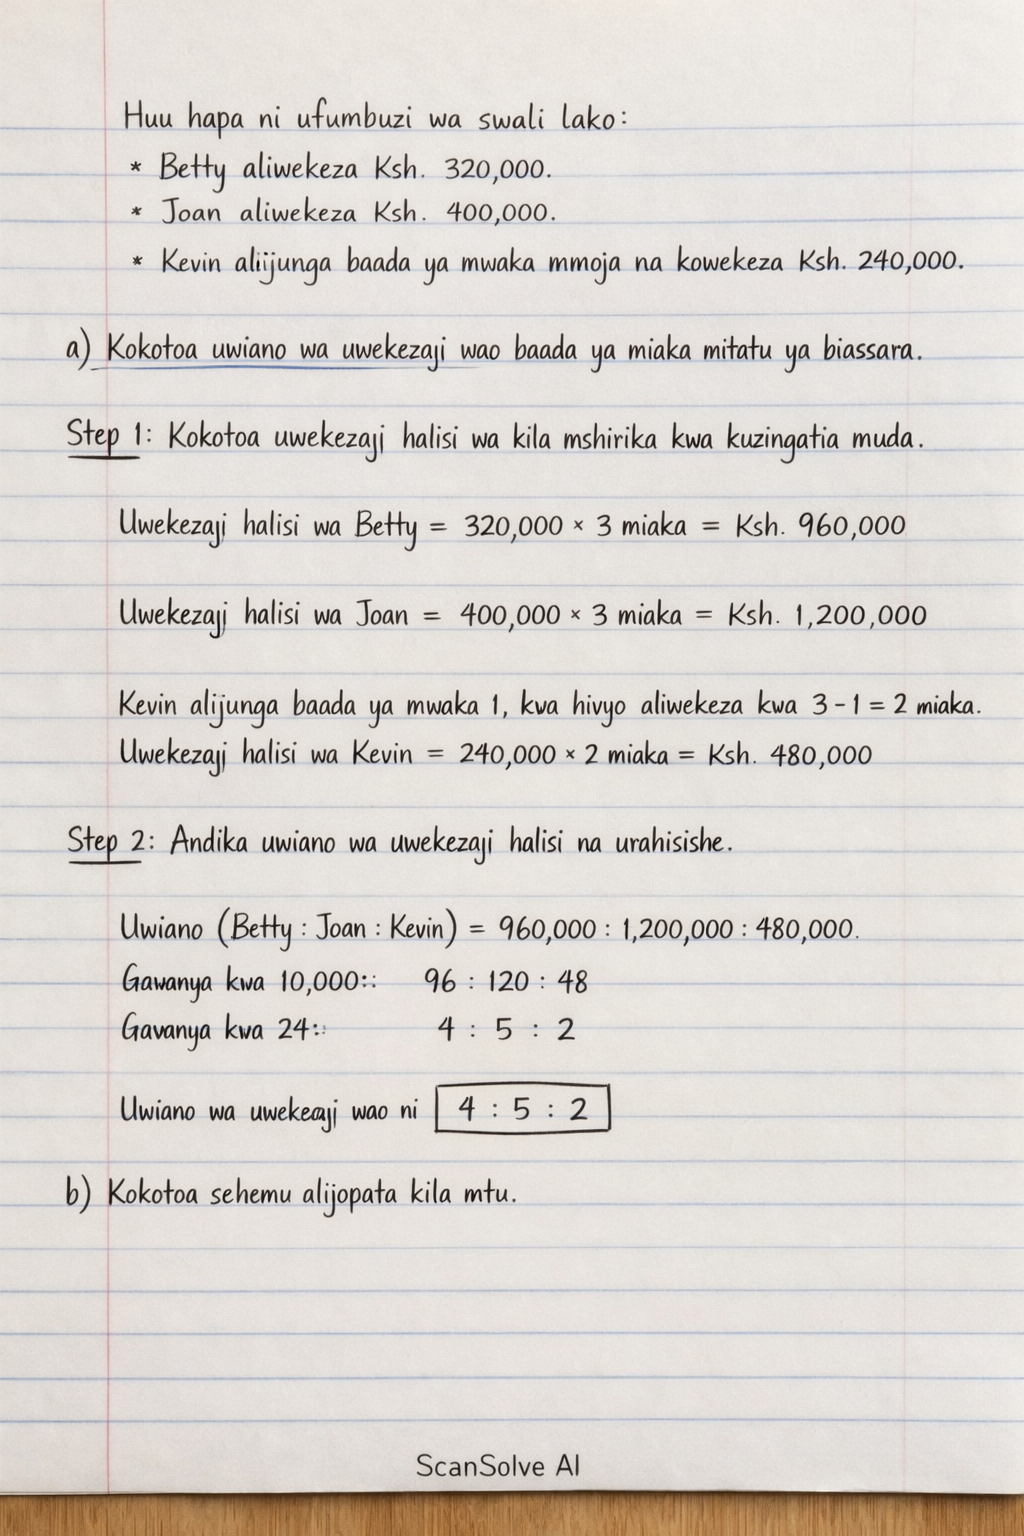 Huu hapa ni ufumbuzi wa swali lako:
* Betty aliwekeza Ksh. 320,000.
* Joan aliwekeza Ksh. 400,000.
* Kevin aliijunga baada ya mwaka mmoja na kowekeza Ksh. 240,000.
a) Kokotoa uwiano wa uwekezaji wao baada ya miaka mitatu ya biassara.
Step 1: Kokotoa uwekezaji halisi wa kila mshirika kwa kuzingatia muda.
Uwekezaji halisi wa Betty = 320,000 × 3 miaka = Ksh. 960,000
Uwekezaji halisi wa Joan = 400,000 × 3 miaka = Ksh. 1,200,000
Kevin alijunga baada ya mwaka 1, kwa hivyo aliwekeza kwa 3 - 1 = 2 miaka.
Uwekezaji halisi wa Kevin = 240,000 × 2 miaka = Ksh. 480,000
Step 2: Andika uwiano wa uwekezaji halisi na urahisishe.
Uwiano (Betty : Joan : Kevin) = 960,000 : 1,200,000 : 480,000.
Gawanya kwa 10,000:: 96 : 120 : 48
Gavanya kwa 24:: 4 : 5 : 2
Uwiano wa wao ni 4 : 5 : 2
b) Kokotoa sehemu alijopata kila mtu.
ScanSolve AI